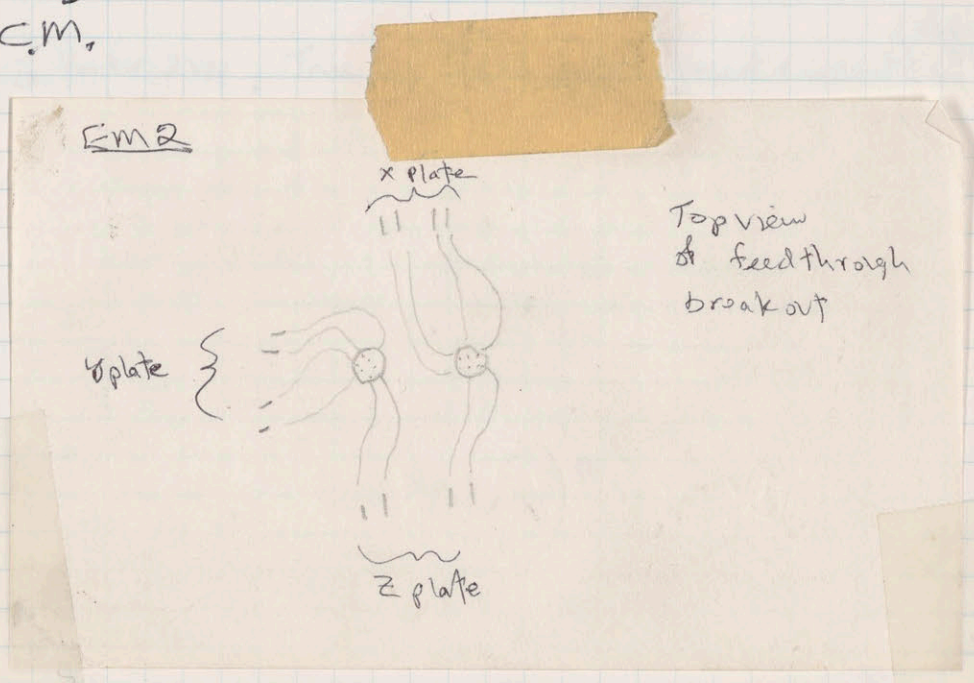 C.M.
EM2
x plate
Top view
of feedthrough
breakout
y plate
z plate